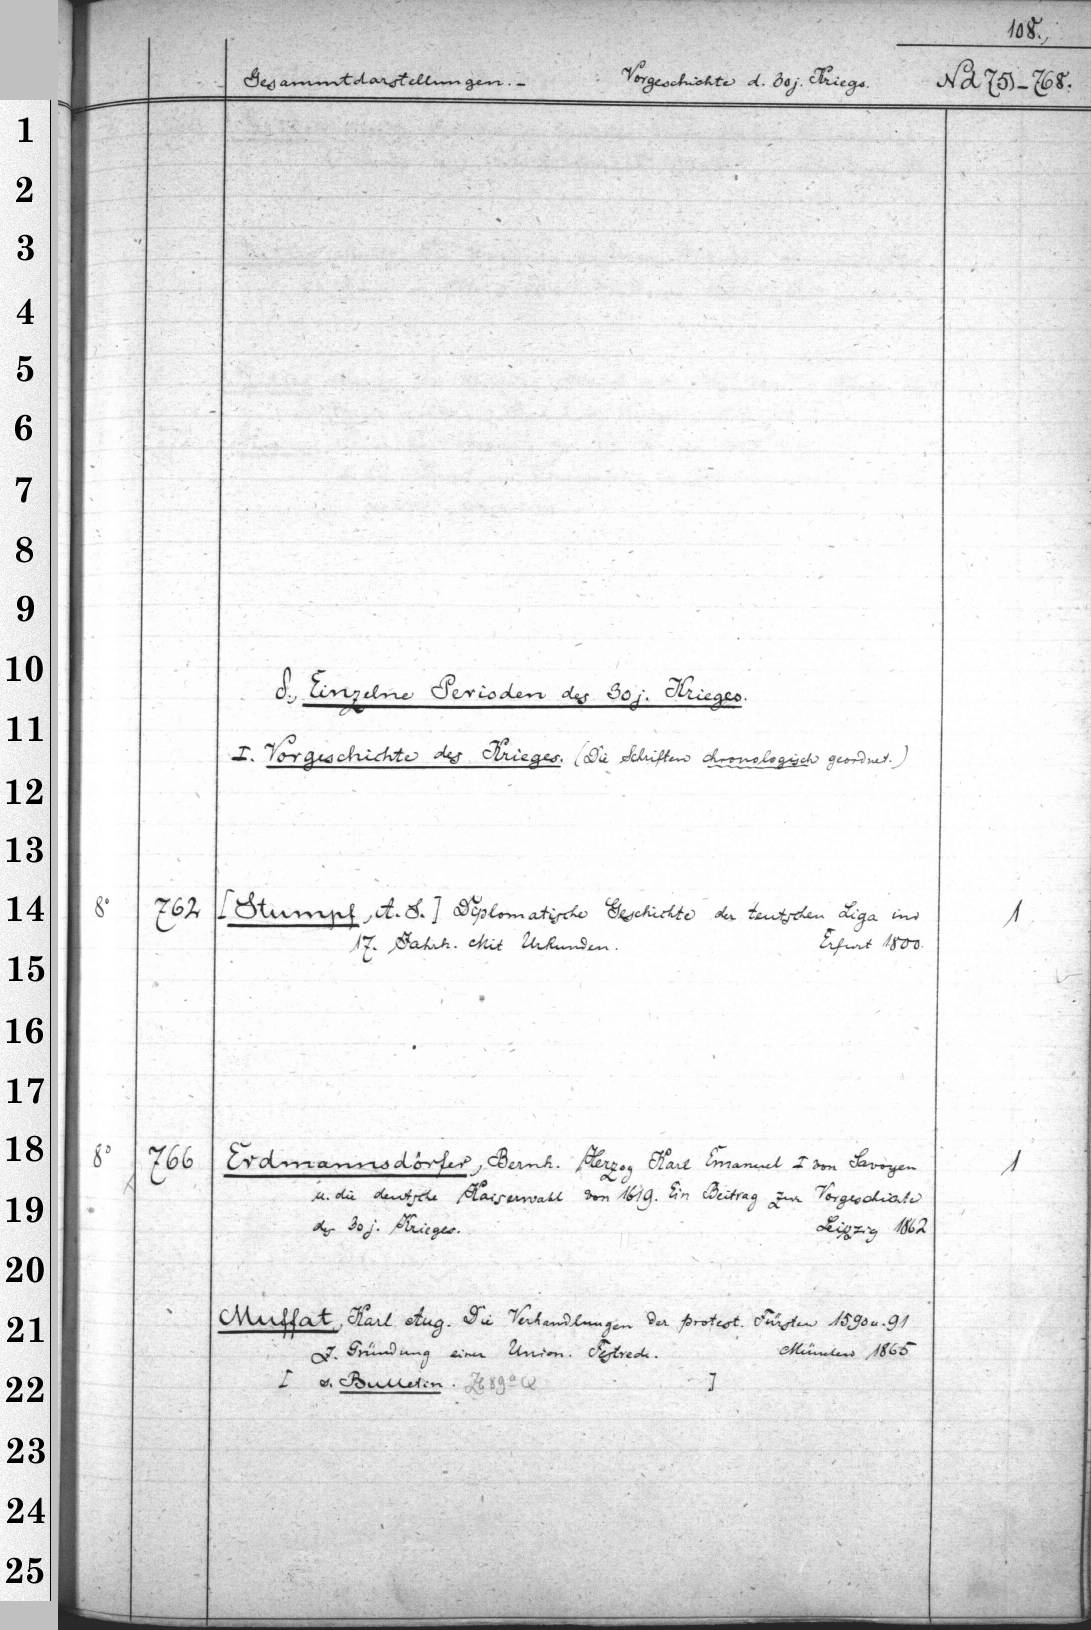 108.
Gesammtdarstellungen. – Vorgeschichte d. 30j. Kriegs. Nd 751–768.
1
2
3
4
5
6
7
8
9
10
δ., Einzelne Perioden des 30j. Krieges.
11
I. Vorgeschichte des Krieges. (Die Schriften chronologisch geordnet.)
12
13
14 8° 762 [Stumpf, A. S.] Diplomatische Geschichte der teutschen Liga im 1
17. Jahrh. Mit Urkunden. Erfurt 1800.
15
16
17
18 8° 766 Erdmannsdörfer, Bernh. Herzog Karl Emanuel I von Savoyen 1
19 u. die deutsche Kaiserwahl von 1619. Ein Beitrag zur Vorgeschichte
des 30j. Krieges. Leipzig 1862
20
21 Muffat, Karl Aug. Die Verhandlungen der protest. Fürsten 1590 u. 91
z. Gründung einer Union. Festrede. München 1865
22 [ s. Bulletin. ]
23
24
25